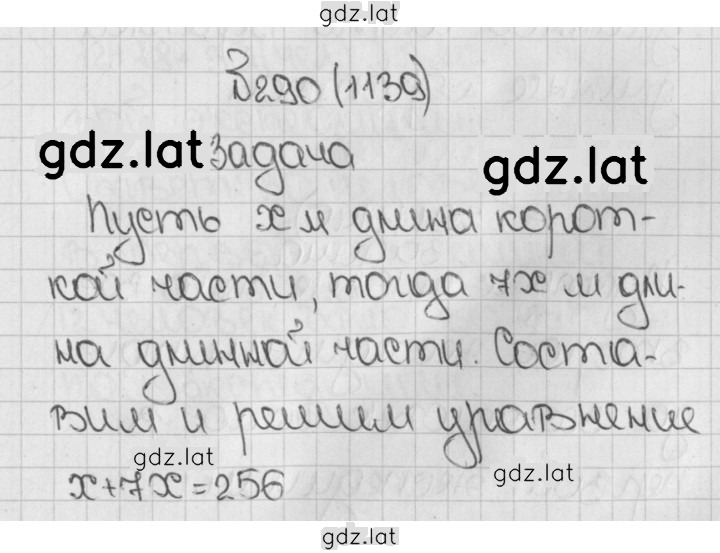 gdz.lat
В290 (1139)
gdz.lat задача gdz.lat
Пусть х м длина корот-
кой части, тогда 7х м дли-
на длинной части. Соста-
вим и решим уравнение
gdz.lat gdz.lat
х+7х=256
gdz.lat